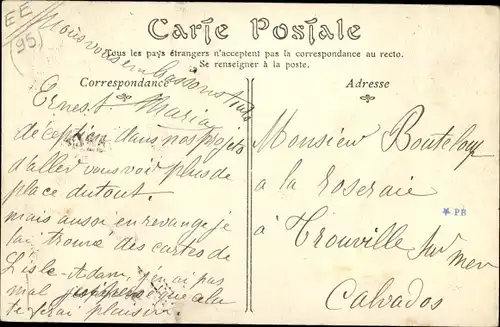 EE
(95)
Nous vous embrassons tous
Carte Postale
Tous les pays étrangers n'acceptent pas la correspondance au recto.
Se renseigner à la poste.
Correspondance
Adresse
Ernest Maria
déception dans nos projets
d'aller vous voir plus de
place du tout.
mais aussi en revange je
t'ai trouvé des cartes de
L'isle-Adam, j'en ai pas
mal que cela
te ferai plaisir.
Monsieur Bouteloup
a la roseraie
à Trouville sur mer
Calvados
* PB